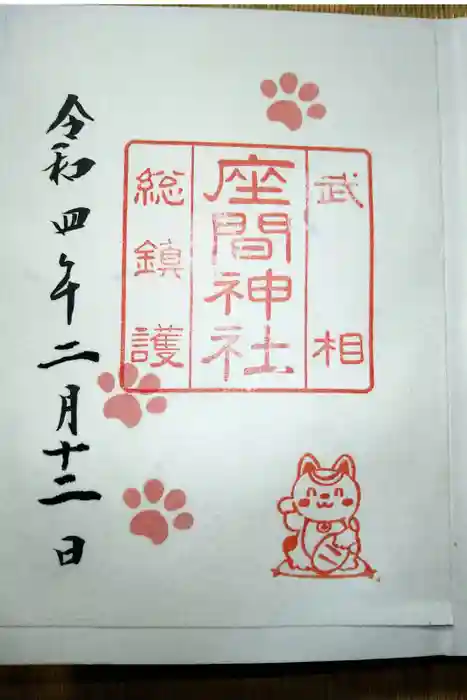 武相
座間神社
総鎮護
令和四年二月十二日